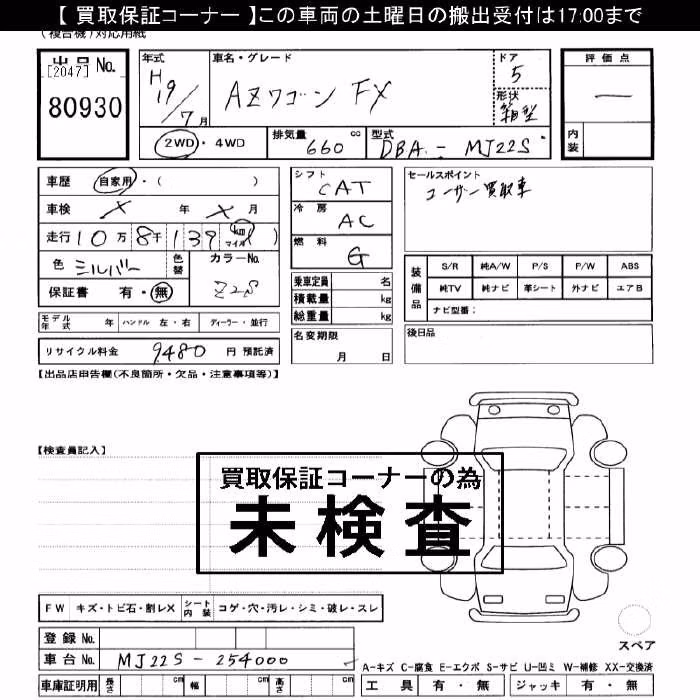 【 買取保証コーナー 】この車両の土曜日の搬出受付は17:00まで
(複合機)対応用紙
出品 No.
[2047]
80930
年式
H19/7月
車名・グレード
AZワゴン FX
ドア
5
形状
箱型
評価点
内装
2WD・4WD
排気量 660 cc
型式 DBA-MJ22S
車歴 自家用・( )
車検 X 年 X 月
走行 10万8千139 km マイル( )
色 シルバー
色替
カラーNo.
Z2S
保証書 有・無
シフト CAT
冷房 AC
燃料 G
乗車定員 名
積載量 kg
総重量 kg
名変期限
月 日
セールスポイント
ユーザー買取車
装備品
S/R 純A/W P/S P/W ABS
純TV 純ナビ 革シート 外ナビ エアB
ナビ型番:
後日品
モデル年式 年 ハンドル 左・右 ディーラー・並行
リサイクル料金 9480 円 預託済
【出品店申告欄(不良箇所・欠品・注意事項等)】
【検査員記入】
買取保証コーナーの為
未検査
FW キズ・トビ石・割レX シート内装 コゲ・穴・汚レ・シミ・破レ・スレ
登録 No.
車台 No. MJ22S-254000
車庫証明用 長さ cm 幅 cm 高さ cm
スペア
A-キズ C-腐食 E-エクボ S-サビ U-凹ミ W-補修 XX-交換済
工具 有・無 ジャッキ 有・無